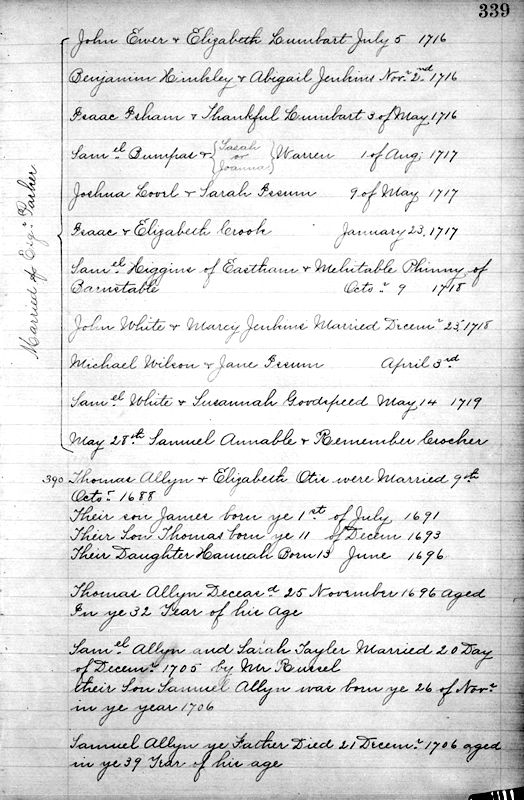 339
John Ewer & Elizabeth Lumbart July 5 1716
Benjamin Hinkley & Abigail Jenkins Novr. 2nd 1716
Isaac Isham & Thankful Lumbart 3 of May 1716
Samel Bumpas & { Sarah or Joanna } Warren 1 of Aug; 1717
Joshua Lovel & Sarah Issum 9 of May 1717
Isaac & Elizabeth Crook January 23, 1717
Samel Higgins of Eastham & Mehitable Phinny of
Barnstable Octor 9 1718
John White & Marcy Jenkins Married Decemr 25, 1718
Michael Wilson & Jane Issum April 3rd
Samel White & Susannah Goodspeed May 14 1719
May 28th Samuel Annable & Remember Crocker
Married of Esqr. Parker
390 Thomas Allyn & Elizabeth Otis were Married 9th
Octor 1688
Their son James born ye 1st of July 1691
Their Son Thomas born ye 11 of Decem 1693
Their Daughter Hannah Born 13 June 1696
Thomas Allyn Deceasd 25 November 1696 aged
In ye 32 Year of his Age
Samel Allyn and Sarah Tayler Married 20 Day
of Decemr. 1705 by Mr Russel
their Son Samuel Allyn was born ye 26 of Novr
in ye year 1706
Samuel Allyn ye Father Died 21 Decemr. 1706 aged
in ye 39 Year of his age